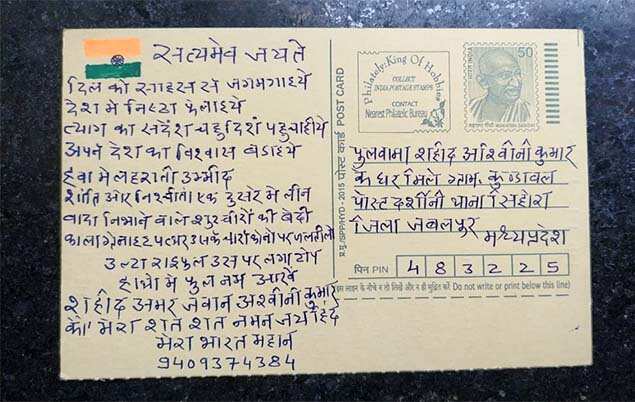 सत्यमेव जयते
दिल को साहस से जगमगाइये
देश मे निष्टा फैलाइये
त्याग का संदेश चहुदिश पहुचाईये
अपने देश का विश्वास बडाइये
हवा मे लहराती उम्मीद
शांति और निश्चींता एक दुसरे मे लीन
वादा निभाने वाले शुरवीरो की वेदी
काला ग्रेनाइट पत्थर उसके चारो कोनो पर जलती लौ
उल्टा राइफुल उस पर लगा टोप
हाथो मे फुल नम आंखे
शहीद अमर जवान अश्वीनी कुमार
को मेरा शत शत नमन जय हिंद
मेरा भारत महान
9409374384
Philately: King Of Hobbies
COLLECT
INDIA POSTAGE STAMPS
CONTACT
Nearest Philatelic Bureau
50
भारत INDIA
महात्मा गांधी MAHATMA GANDHI
र.मु./SPP/HYD - 2015 पोस्ट कार्ड POST CARD
पुलवामा शहीद अश्विीनी कुमार
के घर मिले ग्राम, कुण्डावल
पोस्ट दर्शीनी थाना सिहोरा
जिला जबलपुर
मध्यप्रदेश
पिन PIN 4 8 3 2 2 5
इस लाइन के नीचे न तो लिखें और न ही मुद्रित करें Do not write or print below this line)